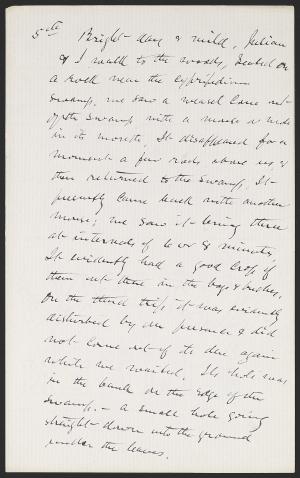 5th Bright day & mild. Julian
& I walk to the woods, Seated on
a rock near the cypripedium
swamp, we saw a weasel come out
of the swamp with a mouse or mole
in its mouth. It disappeared for a
moment a few rods above us, &
then returned to the swamp. It
presently came back with another
mouse; we saw it bring three
at intervals of 6 or 8 minutes.
It evidently had a good crop of
them out there in the bogs & bushes.
On the third trip it was evidently
disturbed by our presence & did
not come out of its den again
while we waited. Its hole was
in the bank on the edge of the
swamp, - a small hole going
straight down into the ground
under the leaves.